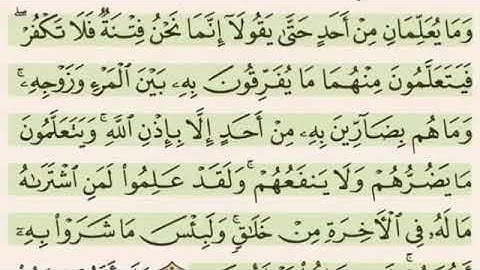 وَمَا يُعَلِّمَانِ مِنْ أَحَدٍ حَتَّىٰ يَقُولَآ إِنَّمَا نَحْنُ فِتْنَةٌ فَلَا تَكْفُرْ ۖ
فَيَتَعَلَّمُونَ مِنْهُمَا مَا يُفَرِّقُونَ بِهِۦ بَيْنَ الْمَرْءِ وَزَوْجِهِۦ ۚ
وَمَا هُم بِضَآرِّينَ بِهِۦ مِنْ أَحَدٍ إِلَّا بِإِذْنِ اللَّهِ ۚ وَيَتَعَلَّمُونَ
مَا يَضُرُّهُمْ وَلَا يَنفَعُهُمْ ۚ وَلَقَدْ عَلِمُوا۟ لَمَنِ اشْتَرَىٰهُ
مَا لَهُۥ فِى الْـَٔاخِرَةِ مِنْ خَلَـٰقٍ ۚ وَلَبِئْسَ مَا شَرَوْا۟ بِهِۦٓ